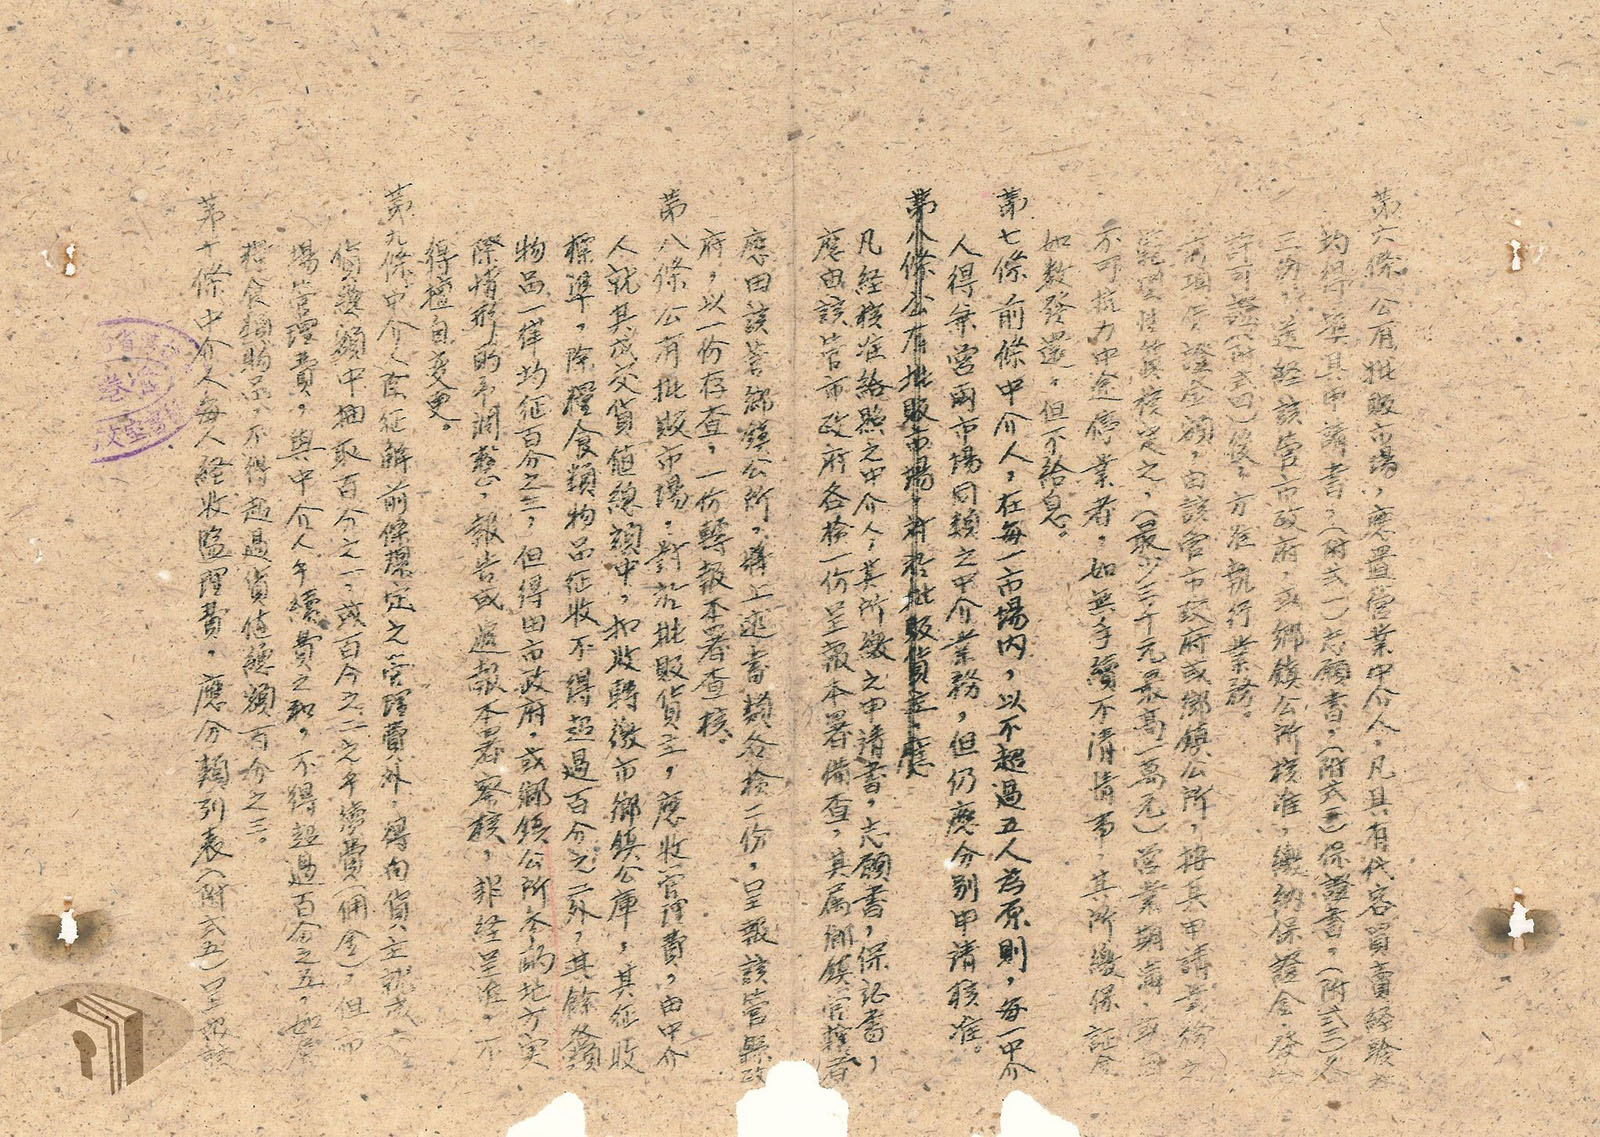 第六條 公有批販市場，應置營業中介人，凡具有代客買賣經驗者
均得填具申請書，（附式一）志願書，（附式二）保證書，（附式三）各
三份，送經該管市政府，或鄉鎮公所核准，繳納保證金，發給
許可證（附式四）後，方准執行業務。
前項保證金額，由該管市政府或鄉鎮公所，按其申請業務之
範圍性質核定之，（最少三千元最高一萬元）營業期滿，或因
不可抗力中途停業者，如無手續不清情事，其所繳保証金
如數發還，但不給息。
第七條 前條中介人，在每一市場內，以不超過五人為原則，每一中介
人得兼營兩市場同類之中介業務，但仍應分別申請核准。
第八條 公有批販市場，對於批販貨主，應
凡經核准給照之中介人，其所繳之申請書，志願書，保証書，
應由該管市政府各檢一份呈報本署備查，其屬鄉鎮管轄者
應由該管鄉鎮公所，將上述書類各檢二份，呈報該管縣政
府，以一份存查，一份轉報本署查核。
第八條 公有批販市場，對於批販貨主，應收管理費，由中介
人就其成交貨值總額中，扣收轉繳市鄉鎮公庫，其征收
標準，除糧食類物品征收不得超過百分之二外，其餘各類
物品一律均征百分之三，但得由市政府，或鄉鎮公所參酌地方実
際情形，酌予調整，報告或遞報本署察核，非経呈准，不
得擅自変更。
第九條 中介人除征解前條規定之管理費外，得向貨主就成交
貨款額中抽取百分之一，或百分之二之手續費（佣金），但市
場管理費，與中介人手續費之和，不得超過百分之五，如屬
糧食類物品，不得超過貨值總額百分之三。
第十條 中介人每人経收監理費，應分類列表（附式五）呈報該